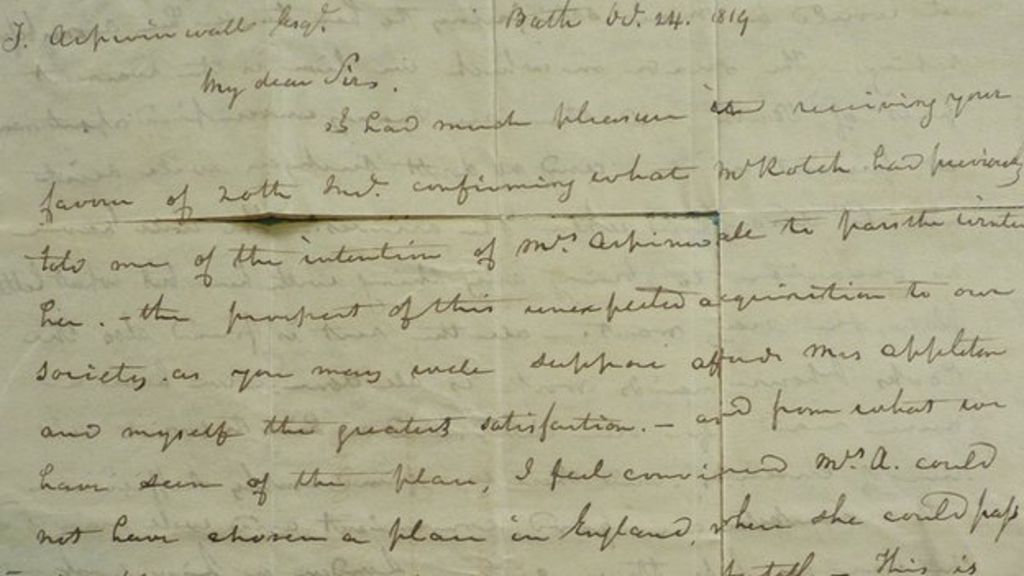 T. Aspinwall Esqr. Bath Oct. 24. 1819
My dear Sir.
I had much pleasure in receiving your
favour of 20th Inst. confirming what Mr Rotch had previously
told me of the intention of Mrs Aspinwall to pass the winter
here. - the prospect of this unexpected acquisition to our
society as you may well suppose affords Mrs Appleton
and myself the greatest satisfaction. - and from what we
have seen of the place, I feel convinced Mrs A. could
not have chosen a place in England, where she could pass
This is